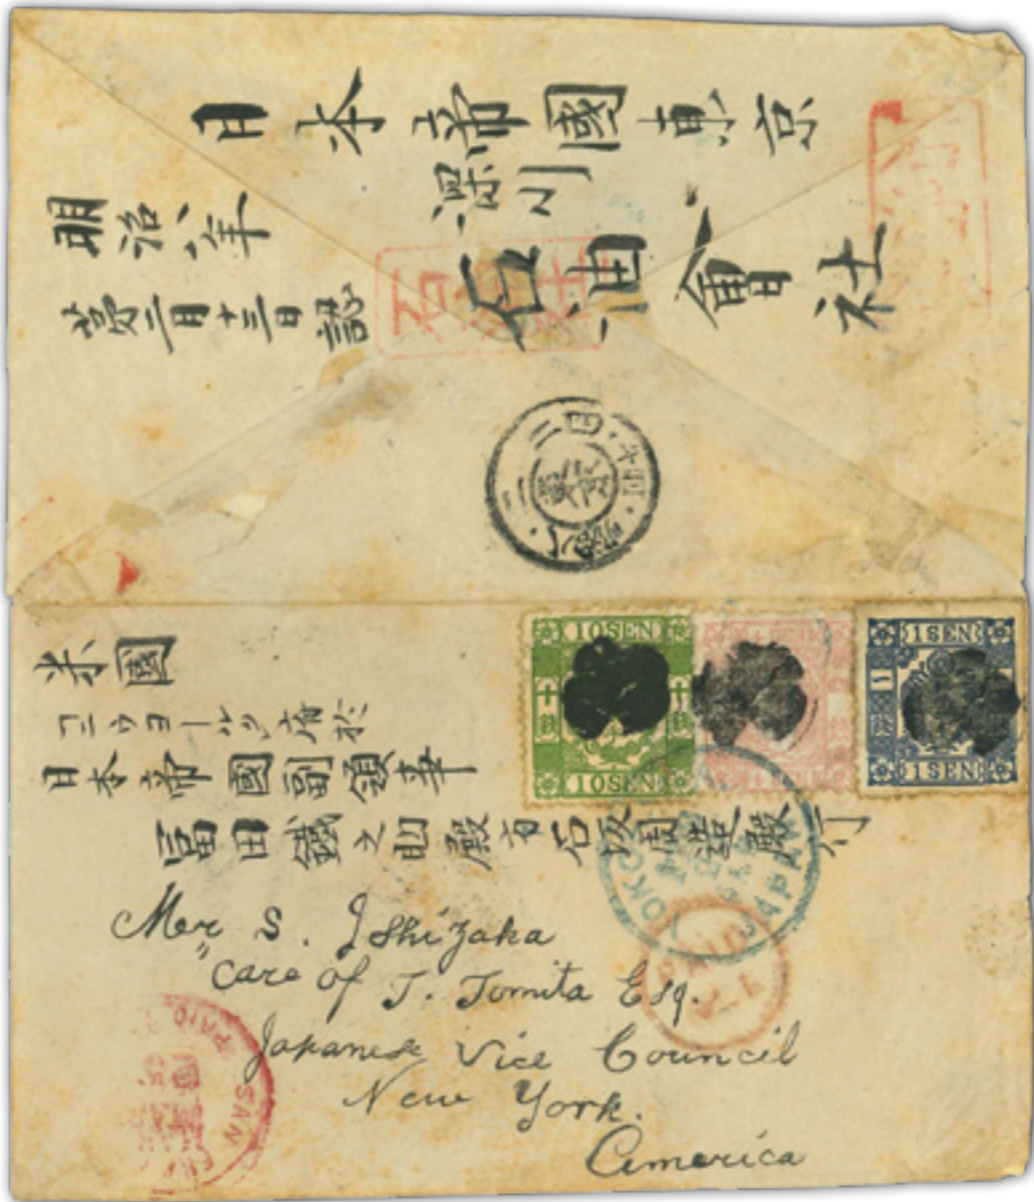 日本帝國東京
深川
石油會社
明治八年
第二月十三日認
10SEN
十
十
銭
銭
10SEN
1SEN
一
銭
1SEN
米國
ニウヨーク府於
日本帝國副領事
冨田鐵之助殿方石坂周造殿行
JAPAN
Mer S. Ishizaka
care of T. Tomita Esq.
Japanese Vice Council
New York.
America
PAID
SAN